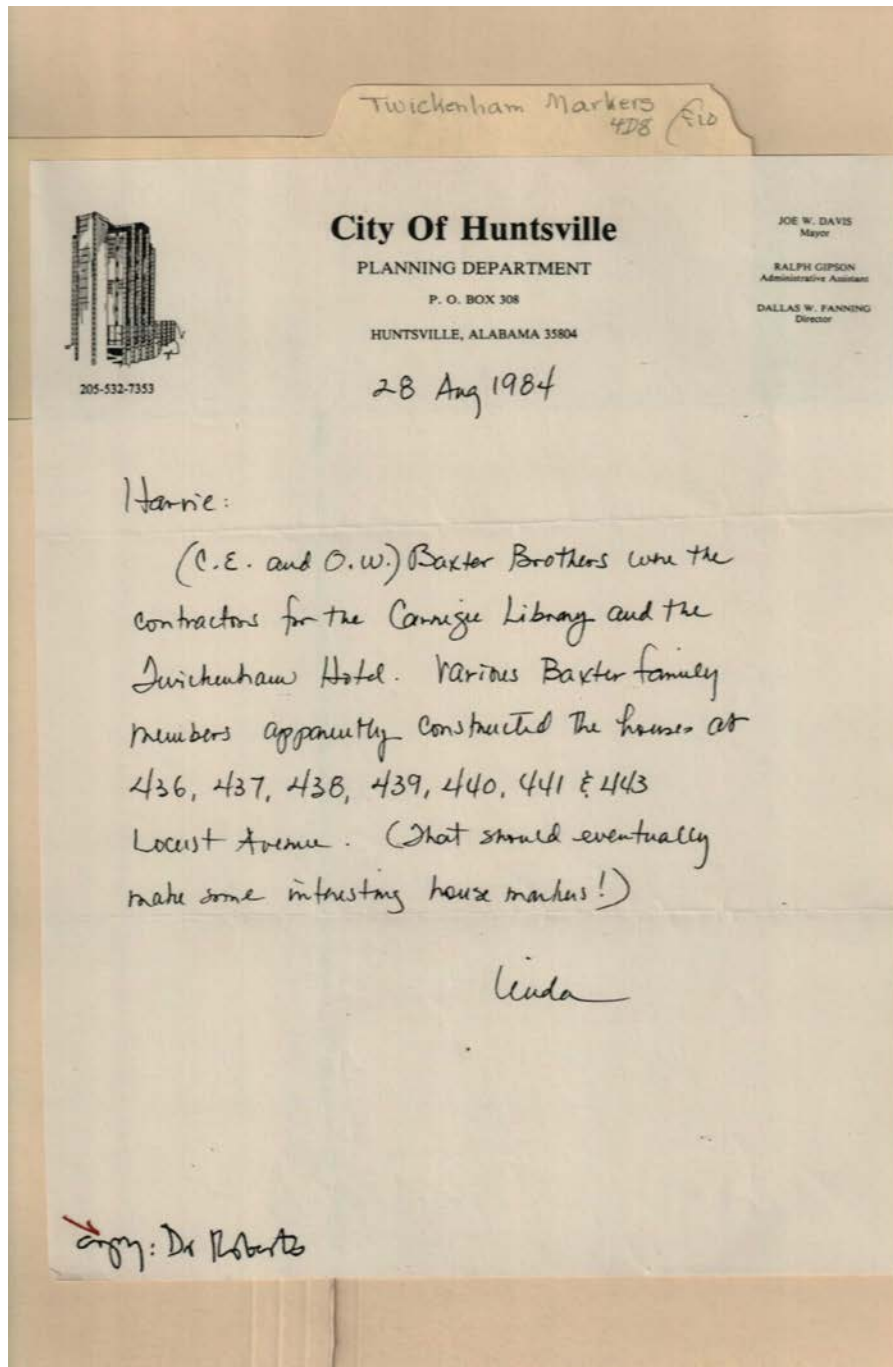 Twickenham Markers
4D8
City Of Huntsville
PLANNING DEPARTMENT
P. O. BOX 308
HUNTSVILLE, ALABAMA 35804
JOE W. DAVIS
Mayor
RALPH GIPSON
Administrative Assistant
DALLAS W. FANNING
Director
205-532-7353
28 Aug 1984
Harrie:
(C.E. and O.W.) Baxter Brothers were the
contractors for the Carnegie Library and the
Twickenham Hotel. Various Baxter family
members apparently constructed the houses at
436, 437, 438, 439, 440, 441 & 443
Locust Avenue. (That should eventually
make some interesting house markers!)
Linda
copy: Dr Roberts